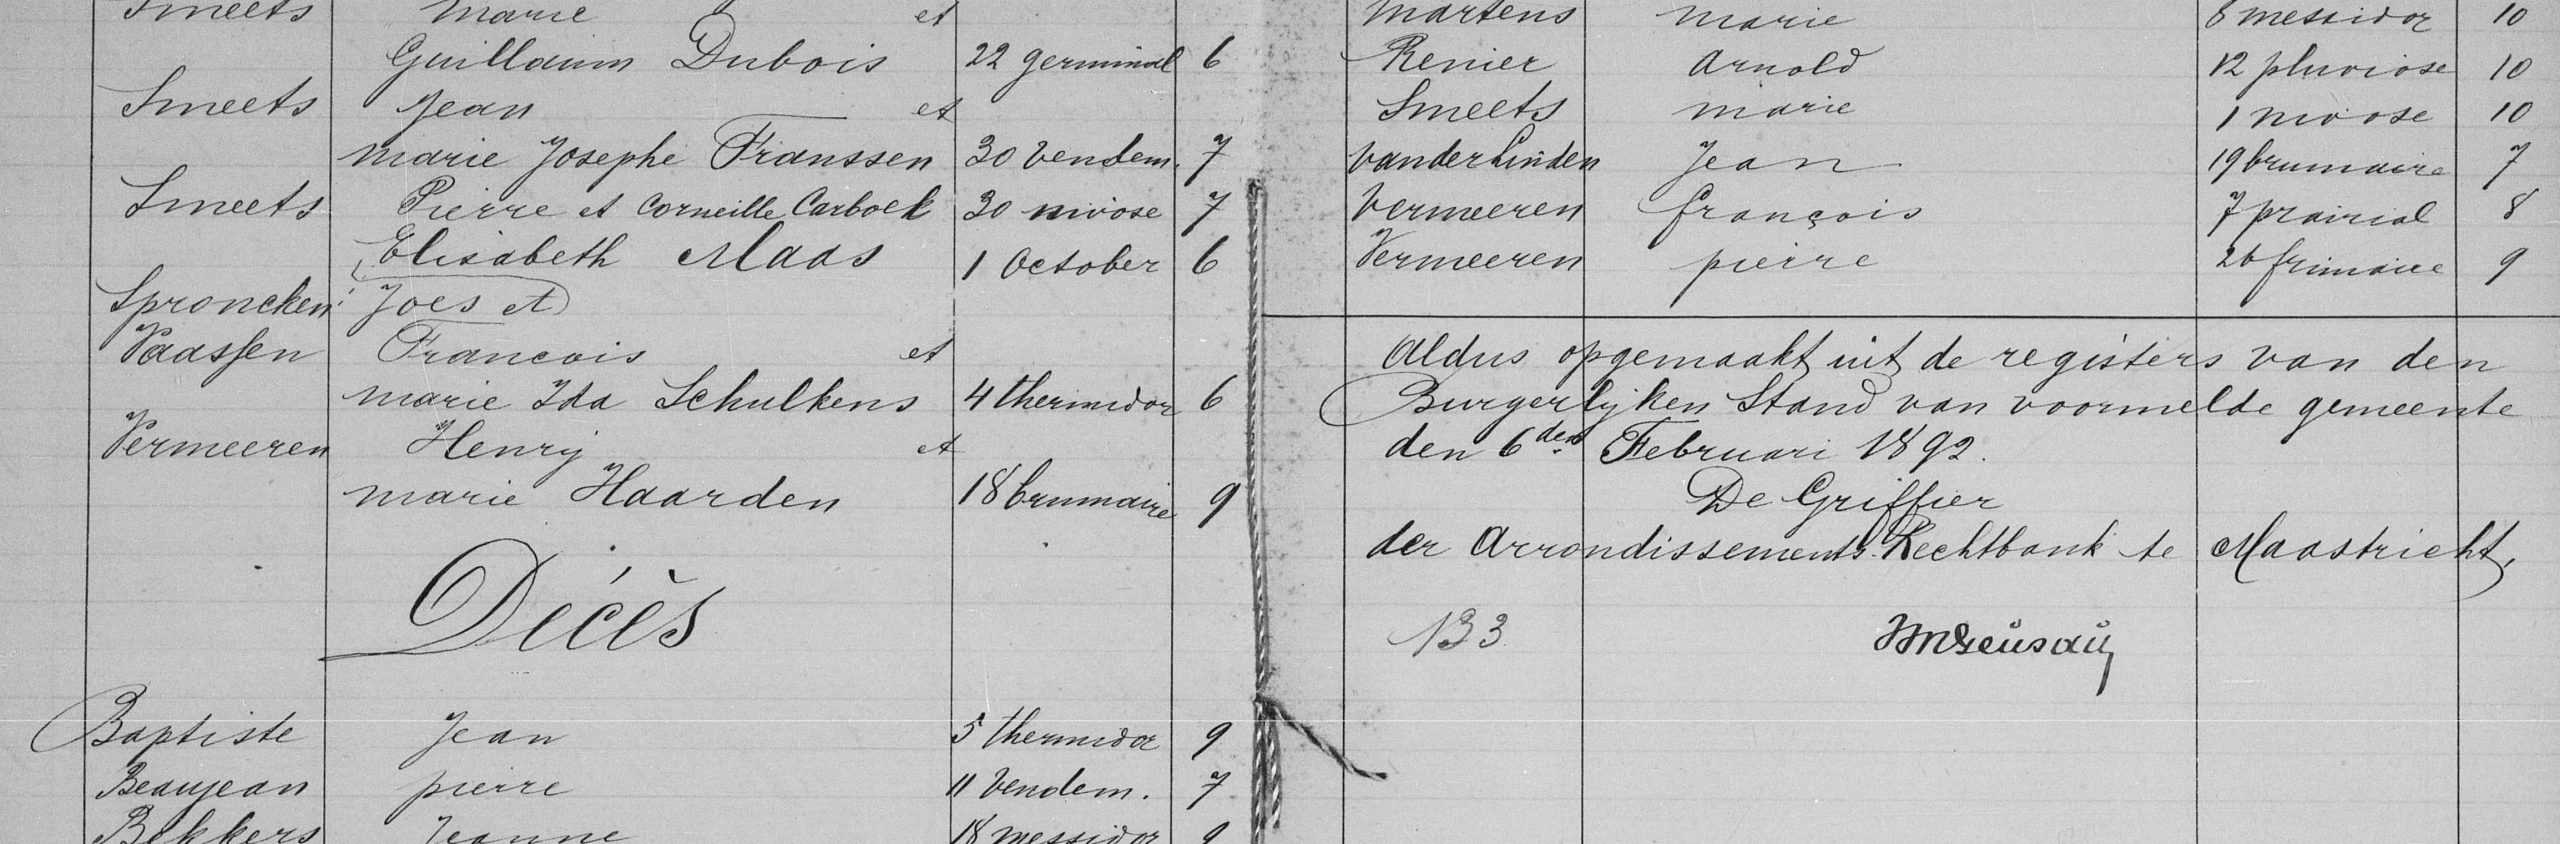 Smeets Marie et
Guillaum Dubois 22 germinal 6
Smeets Jean et
marie Josephe Franssen 30 vendem. 7
Smeets Pierre et Corneille Carboek 30 nivose 7
Elisabeth Maas 1 October 6
Sproncken Joes et
Vaassen Francois et
marie Ida Schulkens 4 thermidor 6
Vermeeren Henry et
marie Haarden 18 brumaire 9
Décès
Baptiste Jean 5 thermidor 9
Beaujean pierre 11 vendem. 7
Bekkers Jeanne 18 messidor 9
Martens marie 8 messidor 10
Renier Arnold 12 pluviose 10
Smeets marie 1 nivose 10
vanderLinden Jean 19 brumaire 7
Vermeeren françois 7 prairial 8
Vermeeren pierre 26 frimaire 9
Aldus opgemaakt uit de registers van den
Burgerlijken Stand van voormelde gemeente
den 6den Februari 1892.
De Griffier
der Arrondissements-Rechtbank te Maastricht,
133